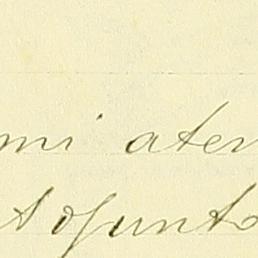 mi aten
Adjunto